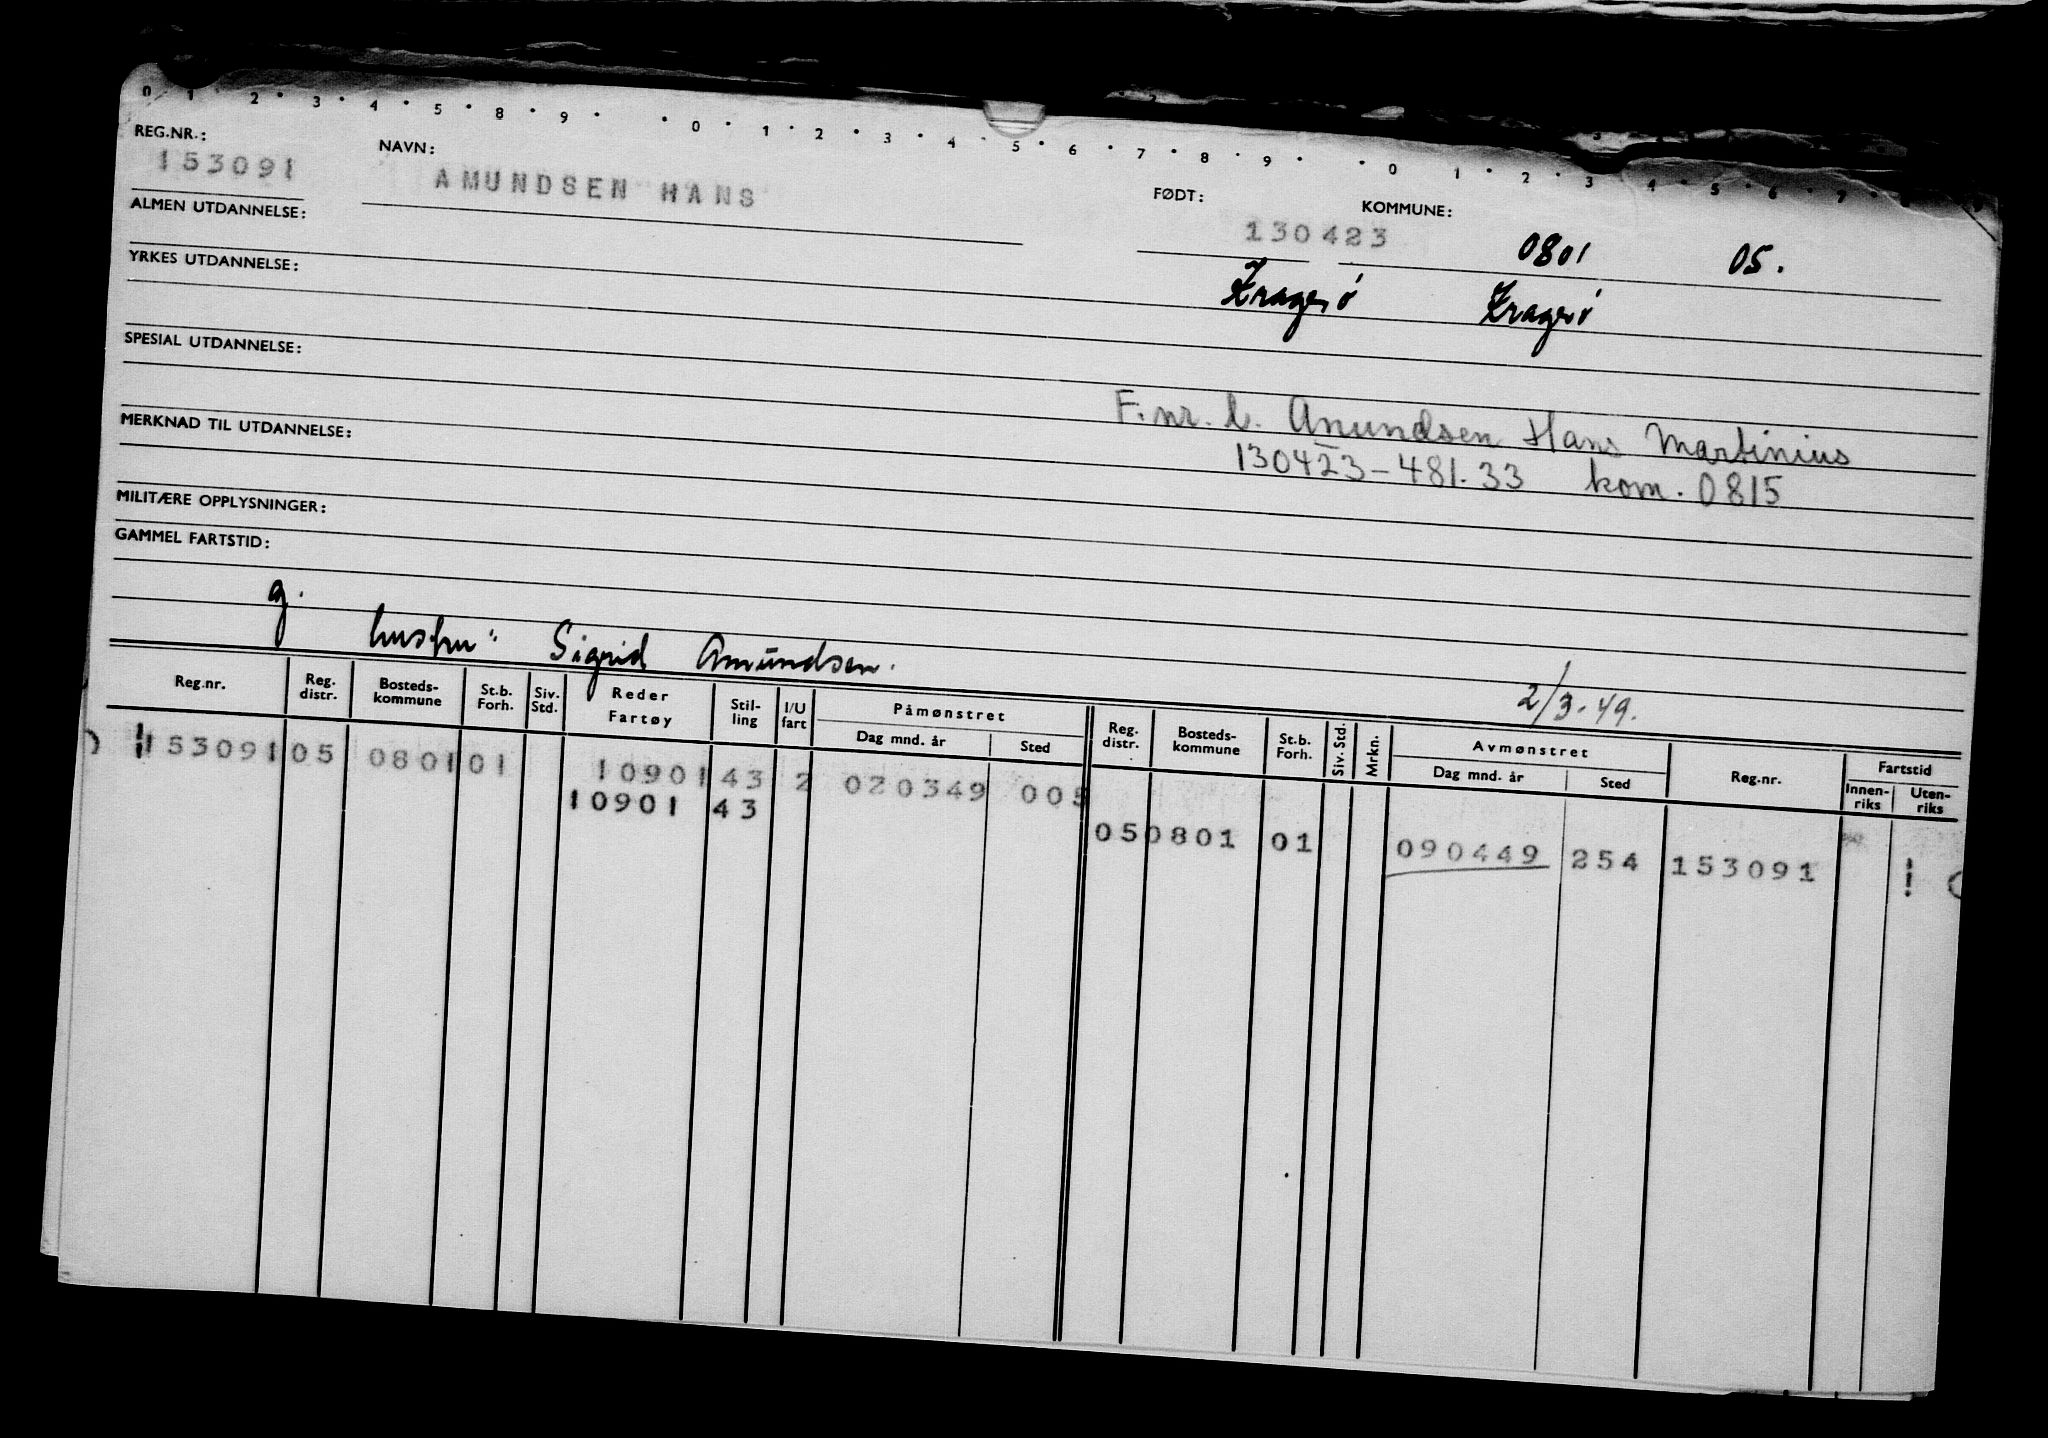 0 1 · 2 · 3 · 4 · 5 · 8 · 9 · · 0 · 1 · 2 · 3 · 4 · 5 · 6 · 7 · 8 · 9 · · 0 · 1 · 2 · 3 · 4 · 5 · 6 · 7 ·
REG.NR.: NAVN: FØDT: KOMMUNE:
153091 AMUNDSEN HANS 130423 0801 05.
ALMEN UTDANNELSE:
Kragerø Kragerø
YRKES UTDANNELSE:
SPESIAL UTDANNELSE:
F.nr. b. Anundsen Hans Martinius
MERKNAD TIL UTDANNELSE:
130423-481.33 kom. 0815
MILITÆRE OPPLYSNINGER:
GAMMEL FARTSTID:
g. hustru: Sigrid Amundsen.
2/3-49.
Reg.nr. Reg. distr. Bosteds-kommune St.b. Forh. Siv. Std. Reder Fartøy Stil-ling I/U fart Påmønstret Dag mnd. år Sted Reg. distr. Bosteds-kommune St.b. Forh. Siv. Std. Mrkn. Avmønstret Dag mnd. år Sted Reg.nr. Fartstid Innen-riks Uten-riks
153091 05 0801 01 10901 43 2 020349 005
10901 43 05 0801 01 090449 254 153091